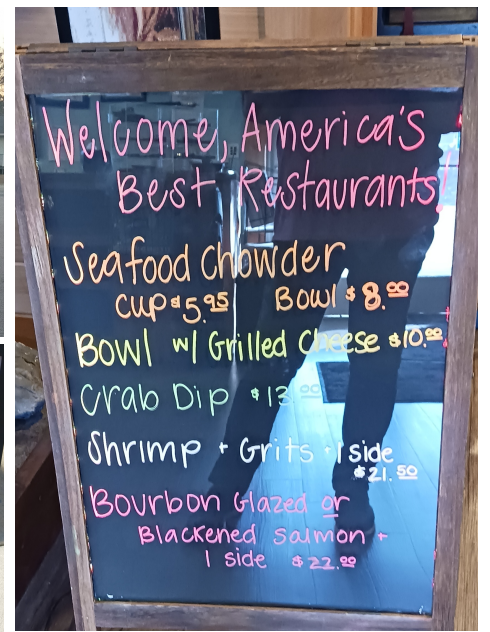 Welcome, America's
Best Restaurants!
Seafood Chowder
Cup $5.95 Bowl $8.00
Bowl w/ Grilled Cheese $10.00
Crab Dip $13.00
Shrimp + Grits + 1 side
$21.50
Bourbon Glazed or
Blackened Salmon +
1 side $22.00